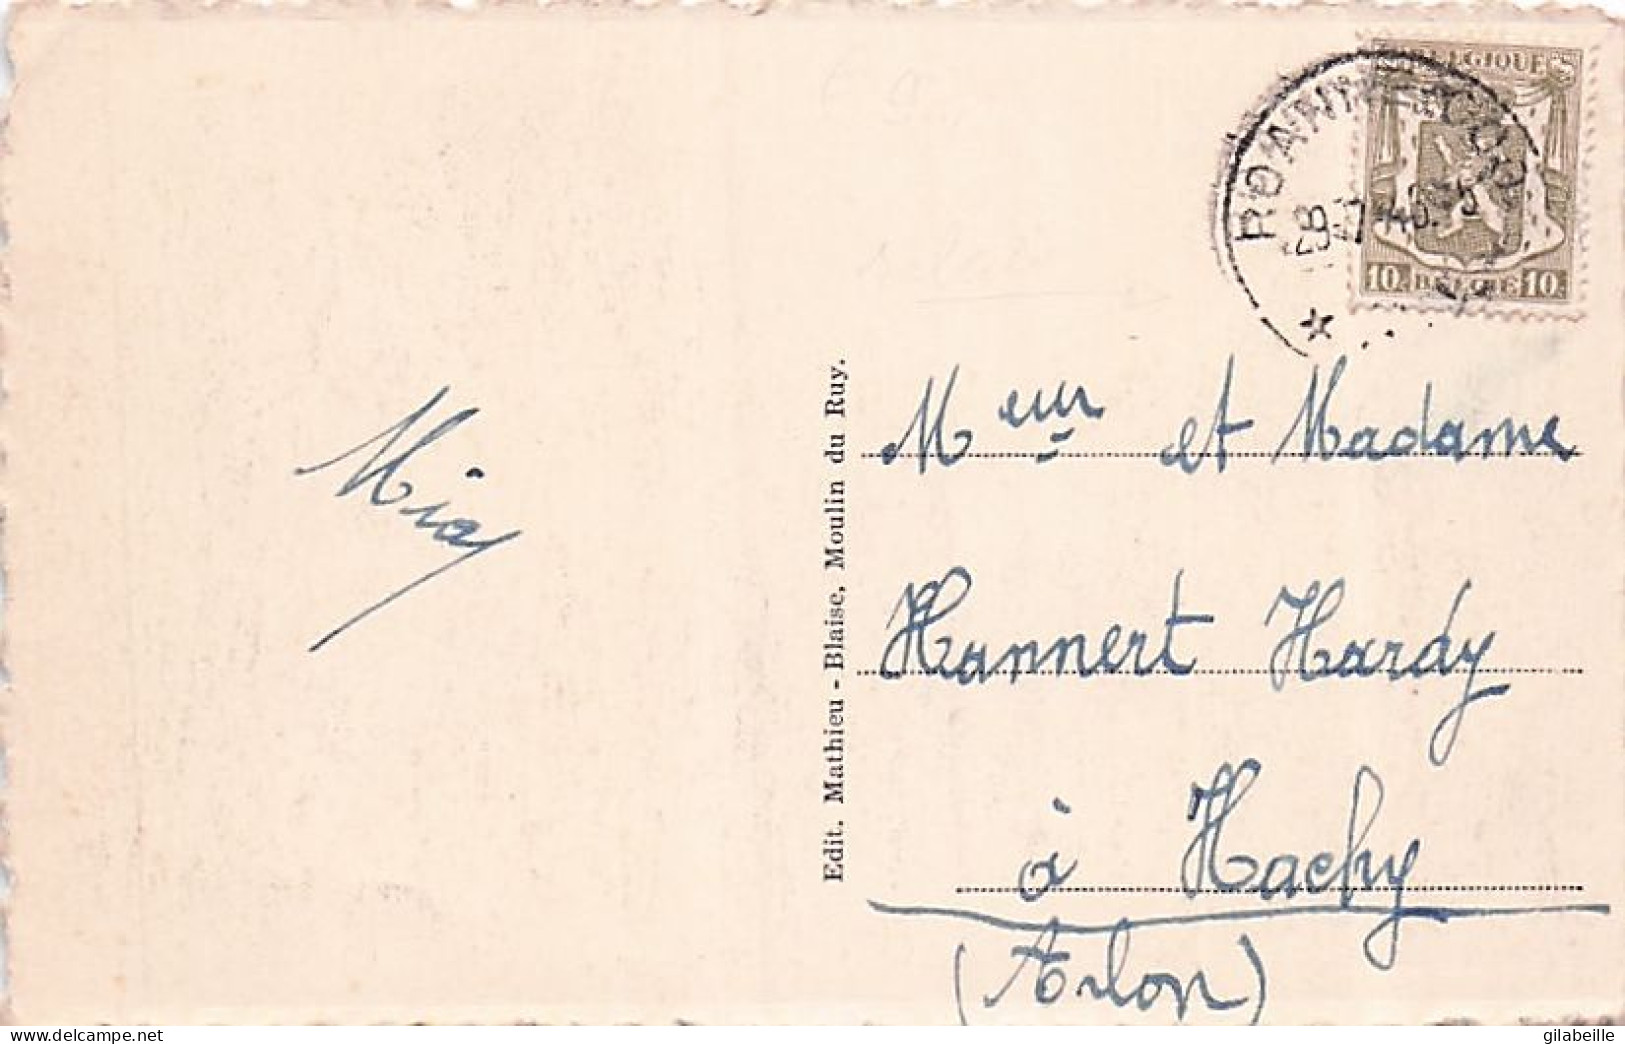 BELGIQUE
10c BELGIE 10c
Mia
Edit. Mathieu - Blaise, Moulin du Ruy.
Meur et Madame
Hannert Hardy
à Hachy
(Arlon)
www.delcampe.net
gilabeille